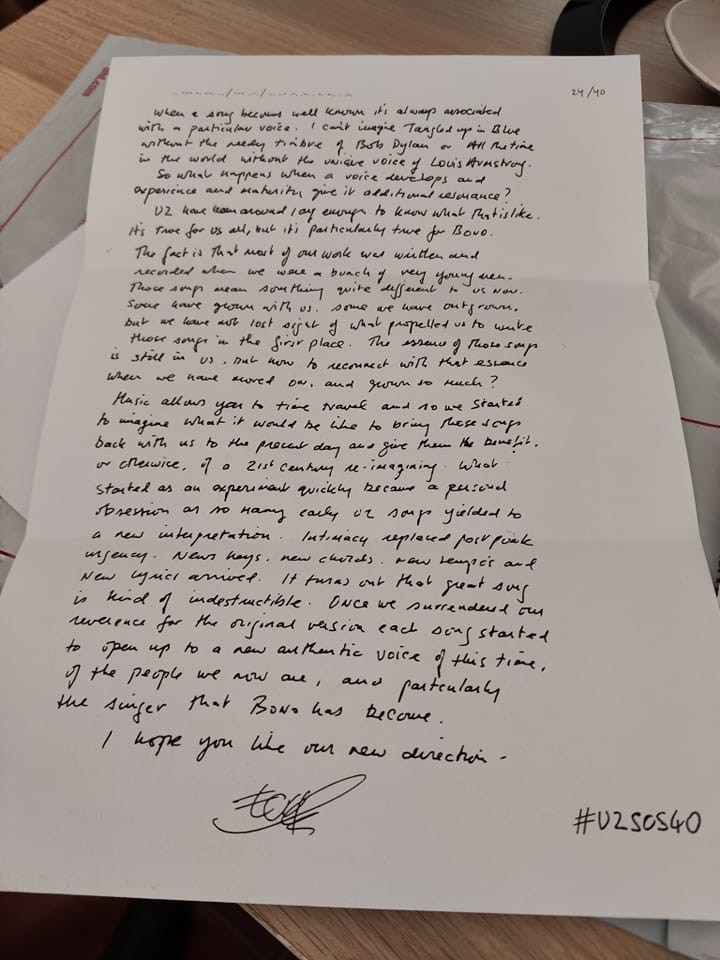 24/40
When a song becomes well known it's always associated
with a particular voice. I can't imagine Tangled up in Blue
without the reedy timbre of Bob Dylan or All the time
in the world without the unique voice of Louis Armstrong.
So what happens when a voice develops and
experience and maturity give it additional resonance?
U2 have been around long enough to know what that is like.
It's true for us all, but it's particularly true for Bono.
The fact is that most of our work was written and
recorded when we were a bunch of very young men.
Those songs mean something quite different to us now.
Some have grown with us. some we have outgrown.
but we have not lost sight of what propelled us to write
those songs in the first place. The essence of those songs
is still in us, but how to reconnect with that essence
when we have moved on, and grown so much?
Music allows you to time travel and so we started
to imagine what it would be like to bring these songs
back with us to the present day and give them the benefit,
or otherwise, of a 21st century re-imagining. What
started as an experiment quickly became a personal
obsession as so many early U2 songs yielded to
a new interpretation. Intimacy replaced post punk
urgency. News keys. new chords. new tempo's and
new lyrics arrived. It turns out that great song
is kind of indestructible. Once we surrendered our
reverence for the original version each song started
to open up to a new authentic voice of this time,
of the people we now are, and particularly
the singer that Bono has become.
I hope you like our new direction -
#U2SOS40